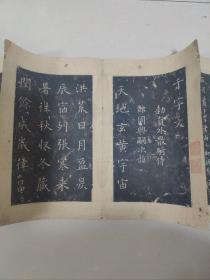 千字文
勑員外散騎侍
郎周興嗣次韻
天地玄黃宇宙
洪荒日月盈昃
辰宿列張寒來
暑往秋收冬藏
閏餘成歲律呂